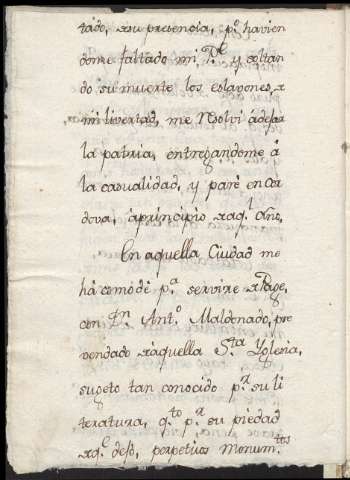 tádo, su presencia, p.º havien
dome faltado mi P.e y soltan
do su muerte los eslavones, 
mi livertad, me resolvi a dexar
la patria, entregandome á
la casualidad, y paré en Cor
dova, á principio aq.l Año,
En aquella Ciudad me
há comodé p.a servir de Page,
con D.n Ant.o Maldonado, pre
vendado aquella S.ta Yglesia,
sugeto tan conocido p.r su li
teratura, q.to p.r su piedad
q.e dexó, perpetuos Monum.tos